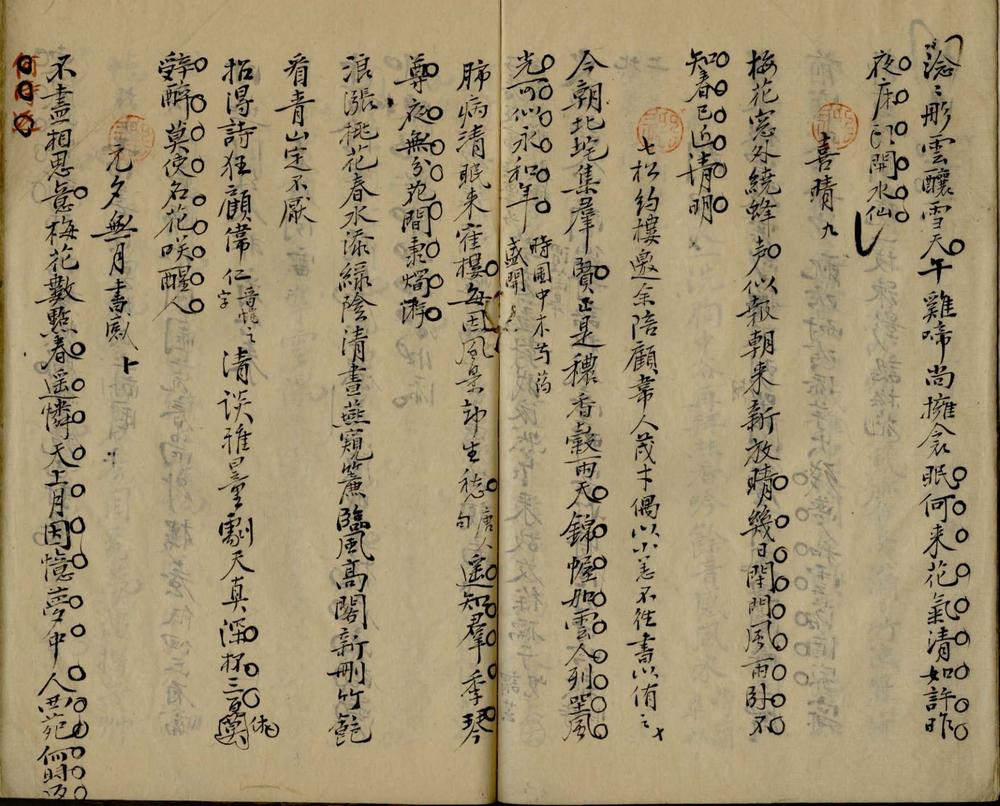 淰淰彤雲釀雪天午雞啼尚擁衾眠何來花氣清如許昨
夜床头開水仙
喜晴九
梅花窓外繞蜂声似報朝来新放晴幾日閉門風雨卧不
知春已近清明
七松約樓邀余陪顧韋人茂才偶以小恙不往書以侑之
今朝北垞集羣賢正是穠香穀雨天錦幄如雲人列坐風
光可似永和年
時圃中木芍药
盛開
肺病清眠来寉樓每因風景却生愁
唐人
句
遙知羣季琴
尊夜無分花間秉燭游
浪漲桃花春水添綠陰清晝燕窺簾臨風高閣新刪竹飽
看青山定不厭
招得詩狂顧偉仁
字
清谈雅量劇天真深杯三百
辭醉莫使名花咲醒人
元夕無月書感
不盡相思意梅花數點春遥憐天上月因憶夢中人